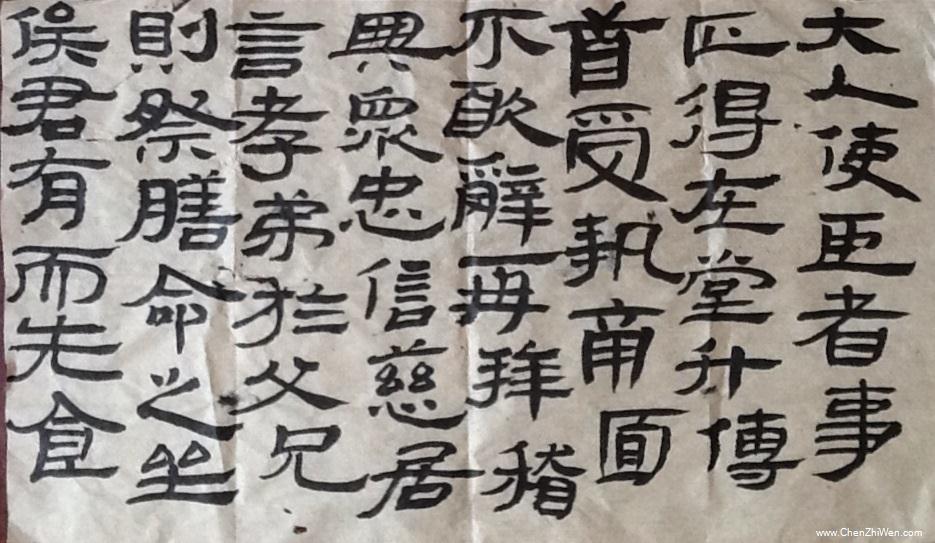 大人使臣者事
得在堂升傳
首受執南面
不敢辭再拜稽
與眾忠信慈居
言孝弟於父兄
則祭膳命之坐
侯君有而先食
www.ChenZhiWen.com